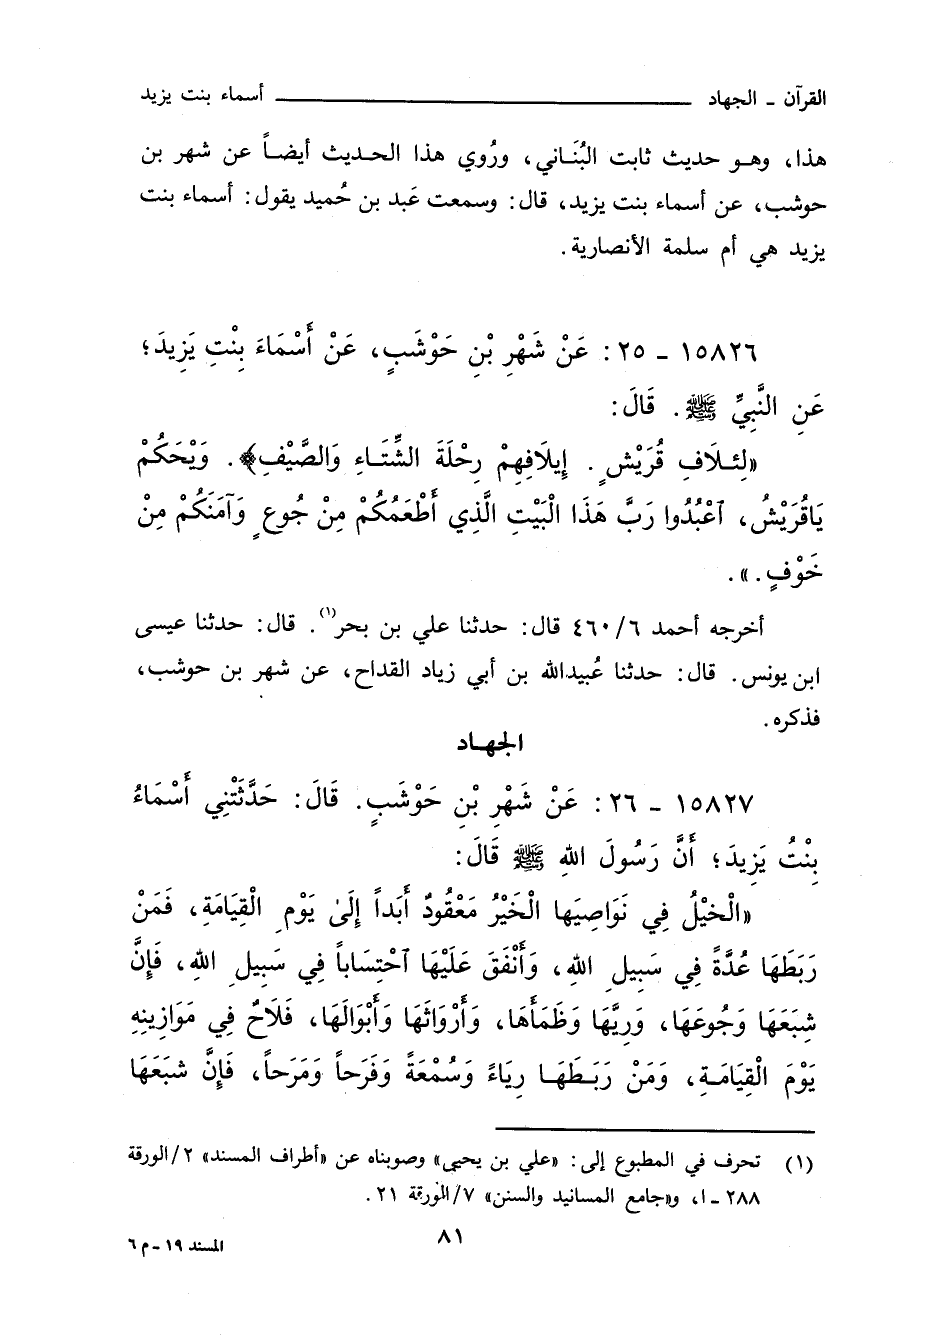 القرآن ـ الجهاد أسماء بنت يزيد
هذا، وهـو حديث ثابت البُنَاني، ورُوي هذا الحـديث أيضـاً عن شهر بن
حوشب، عن أسماء بنت يزيد، قال: وسمعت عَبد بن حُميد يقول: أسماء بنت
يزيد هي أم سلمة الأنصارية.
١٥٨٢٦ ـ ٢٥: عَنْ شَهْرِ بْنِ حَوْشَبٍ، عَنْ أَسْمَاءَ بِنْتِ يَزِيدَ؛
عَنِ النَّبِيِّ ﷺ. قَالَ:
«لِئـلَافِ قُرَيْشٍ. إِيلَافِهِمْ رِحْلَةَ الشِّتَـاءِ وَالصَّيْفِ﴾. وَيْحَكُمْ
يَاقُرَيْشُ، اعْبُدُوا رَبَّ هَذَا الْبَيْتِ الَّذِي أَطْعَمُكُمْ مِنْ جُوعٍ وَآمَنَكُمْ مِنْ
خَوْفٍ.».
أخرجه أحمد ٤٦٠/٦ قال: حدثنا علي بن بحر(١). قال: حدثنا عيسى
ابن يونس. قال: حدثنا عُبيدالله بن أبي زياد القداح، عن شهر بن حوشب،
فذكره.
الجهـاد
١٥٨٢٧ ـ ٢٦: عَنْ شَهْرِ بْنِ حَوْشَبٍ. قَالَ: حَدَّثَتْنِي أَسْمَاءُ
بِنْتُ يَزِيدَ؛ أَنَّ رَسُولَ اللهِ ﷺ قَالَ:
«الْخيْلُ فِي نَوَاصِيَها الْخَيْرُ مَعْقُودٌ أَبَداً إِلَىٰ يَوْمِ الْقِيَامَةِ، فَمَنْ
رَبَطَهَا عُدَّةً فِي سَبِيلِ اللهِ، وَأَنْفَقَ عَلَيْهَا احْتِسَاباً فِي سَبِيلِ اللهِ، فَإِنَّ
شِبَعَهَا وَجُوعَهَا، وَرِيَّهَا وَظَمَأَهَا، وَأَرْوَاثَهَا وَأَبْوَالَهَا، فَلَاحٌ فِي مَوَازِينِهِ
يَوْمَ الْقِيَامَـةِ، وَمَنْ رَبَـطَهَـا رِيَاءً وَسُمْعَةً وَفَرَحاً وَمَرَحاً، فَإِنَّ شبَعَهَا
(١) تحرف في المطبوع إلى: «علي بن يحيى» وصوبناه عن «أطراف المسند» ٢/الورقة
٢٨٨ ـ ا، و«جامع المسانيد والسنن» ٧/الورقة ٢١.
٨١
المسند ١٩ ـ م ٦